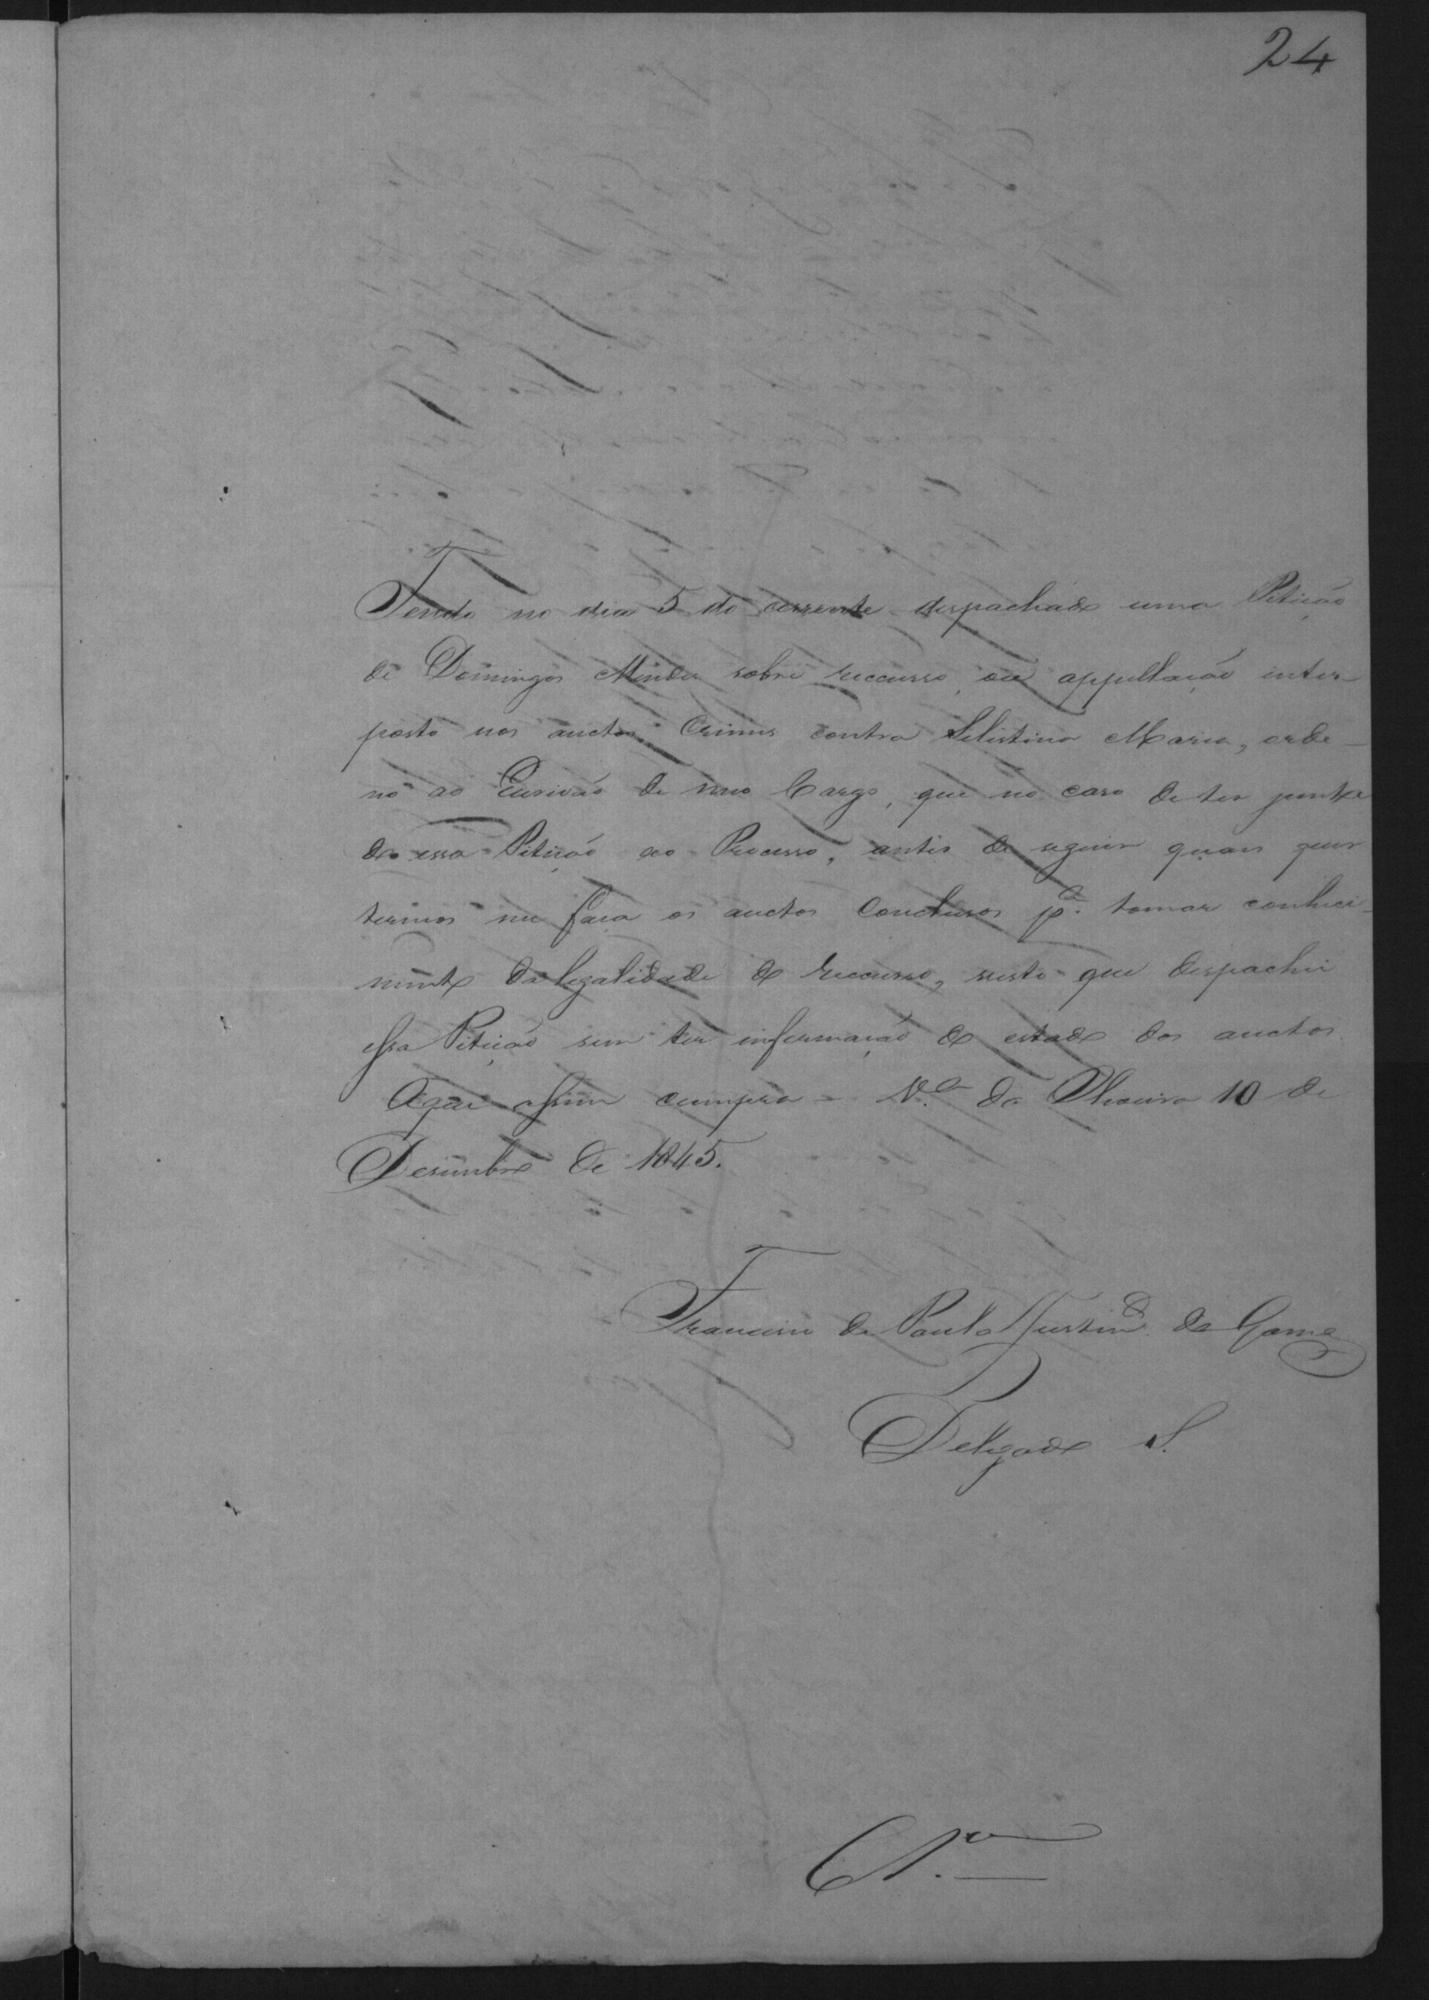 24
Tendo no dia 5 do corrente despachado uma Petição
de Domingos Mendes sobre reccurso, ou appellação inter-
posto nos auctos Crimes contra Selistina Maria, orde-
no ao Escrivão de meo Cargo, que no caso de ter junta
do essa Petição ao Processo, antes de seguir quaes quer
termos me faça os auctos Concluzos p.a tomar conheci-
mento da legalidade do reccurso, visto que despachei
essa Petição sem ter informação do estado dos auctos
O que assim cumpra = V.a da 10 de
Desembro de 1845.
Francisco de Paula Justin.o da Gama
Delegado S.